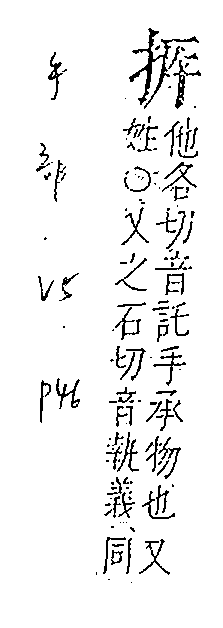 他各切音託手承物也又
姓○又之石切音執義同
手部.V5.P46